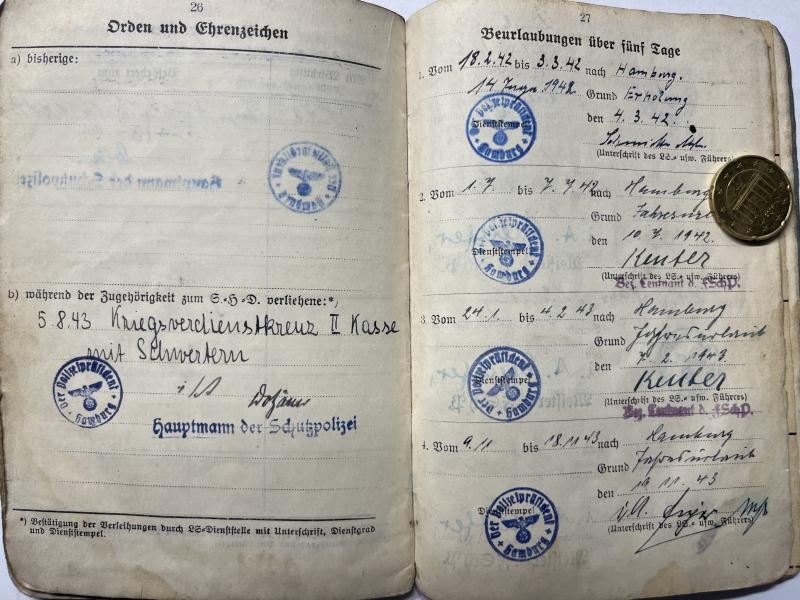 26
Orden und Ehrenzeichen
a) bisherige:
Der Polizeipräsident
Hamburg
Hauptmann der Schutzpolizei
b) während der Zugehörigkeit zum S.-H.-D. verliehene:*)
5.8.43 Kriegsverdienstkreuz II Kasse
mit Schwertern
Der Polizeipräsident
Hamburg
Hauptmann der Schutzpolizei
*) Bestätigung der Verleihungen durch LS-Dienststelle mit Unterschrift, Dienstgrad
und Dienststempel.
27
Beurlaubungen über fünf Tage
1. Vom 18.2.42 bis 3.3.42 nach Hamburg.
14 Tage 1942 Grund Erholung
Dienststempel den 4.3.42.
Der Polizeipräsident
Hamburg
(Unterschrift des LS- usw. Führers)
2. Vom 1.7. bis 7.7.42 nach Hamburg
Grund
Dienststempel den 10.7.1942.
Der Polizeipräsident
Hamburg
Keuter
(Unterschrift des LS- usw. Führers)
Bez. Leutnant d. FSchP.
3. Vom 24.1. bis 4.2.43 nach Hamburg
Grund Jahresurlaub
Dienststempel den 7.2.1943.
Der Polizeipräsident
Hamburg
Keuter
(Unterschrift des LS- usw. Führers)
Bez. Leutnant d. FSchP.
4. Vom 9.11 bis 18.11.43 nach Hamburg
Grund Jahresurlaub
Dienststempel den 19.11.43
Der Polizeipräsident
Hamburg
(Unterschrift des LS- usw. Führers)